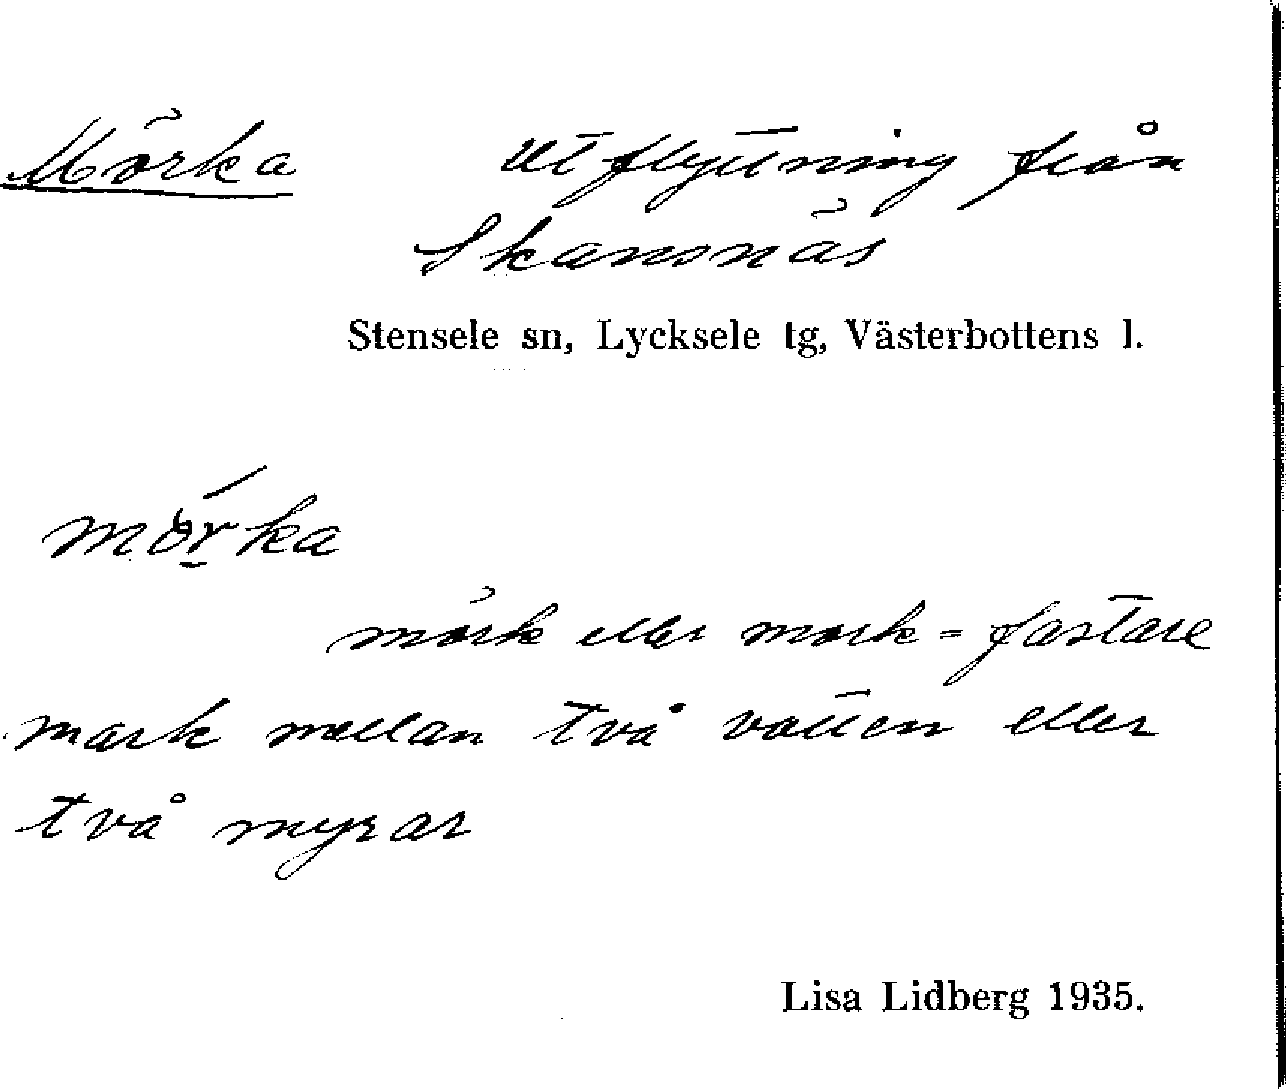 Mörka Utflyttning från
Skansnäs
Stensele sn, Lycksele tg, Västerbottens l.
mörka
mörk eller mork = fastare
mark mellan två vatten eller
två myrar
Lisa Lidberg 1935.